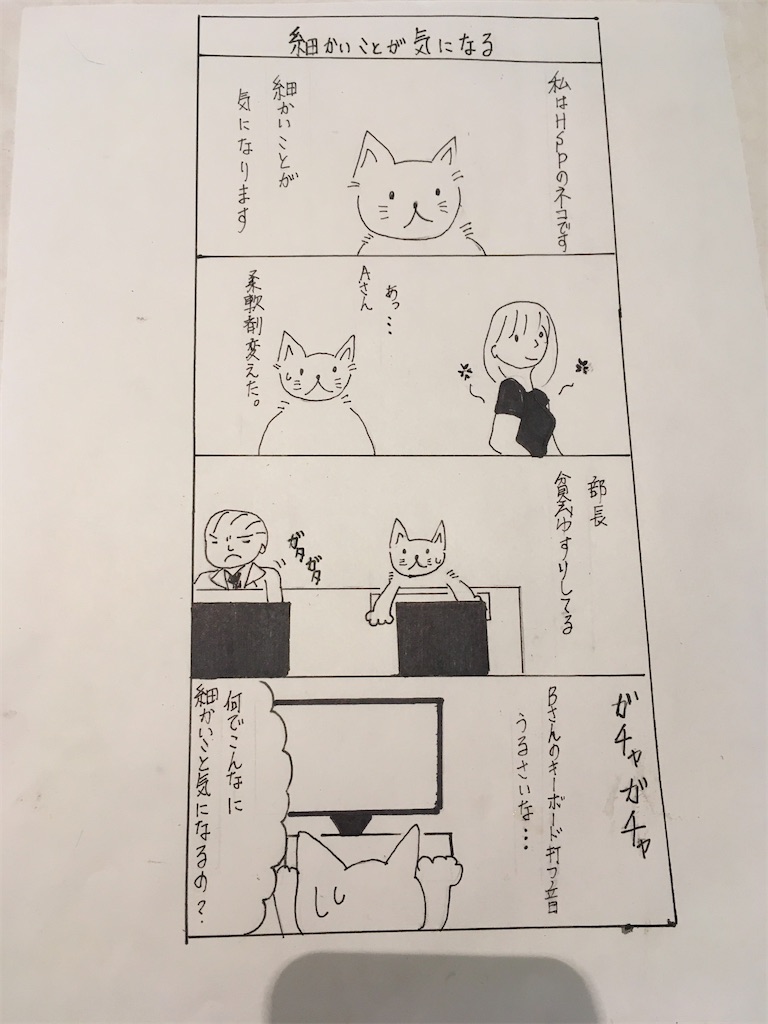 細かいことが気になる
私はHSPのネコです
細かいことが
気になります
あっ…
Aさん
柔軟剤変えた。
部長
貧乏ゆすりしてる
ガタ
ガタ
ガチャガチャ
Bさんのキーボード打つ音
うるさいな…
何でこんなに
細かいこと気になるの?